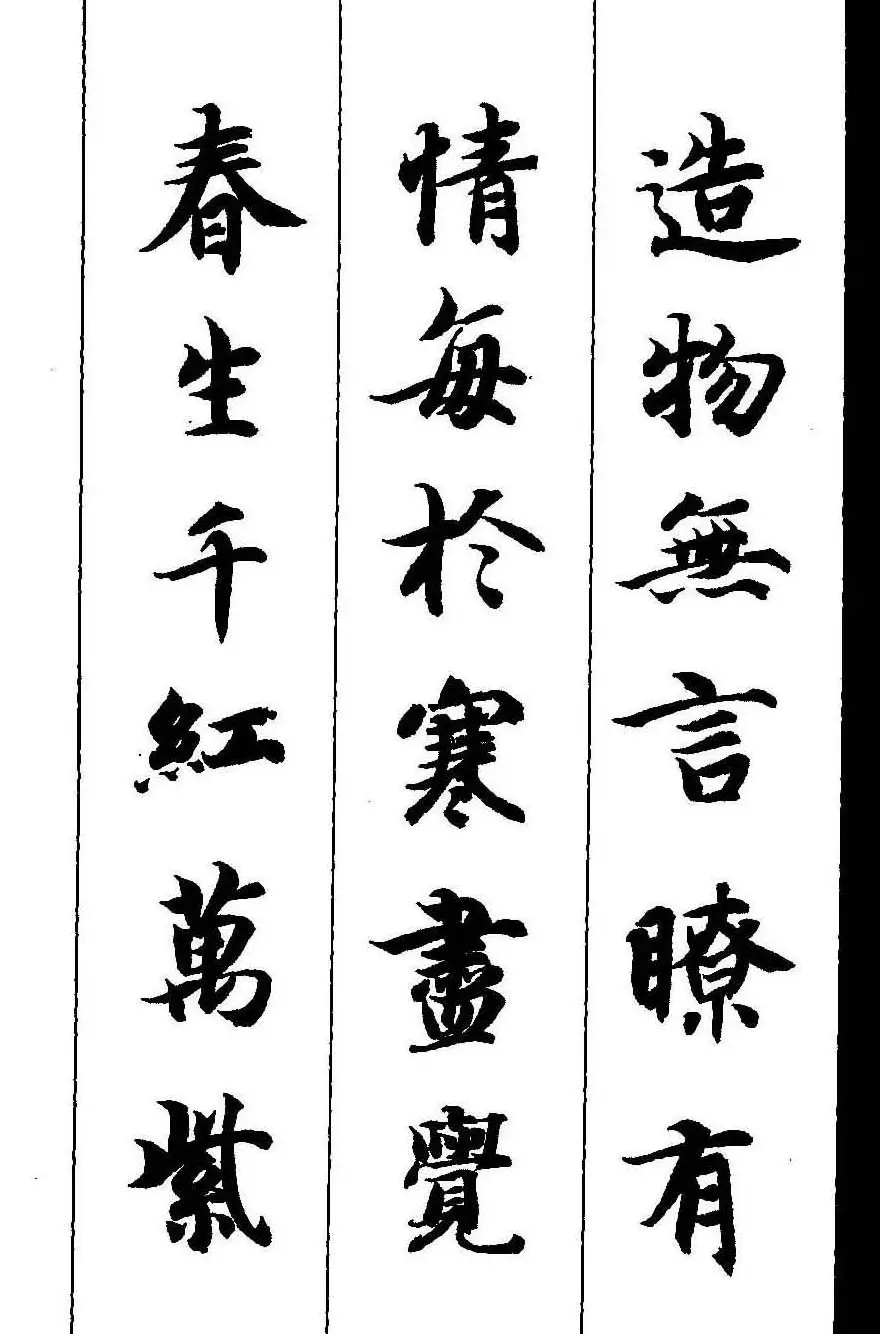 造物無言瞭有
情每於寒盡覺
春生千紅萬紫